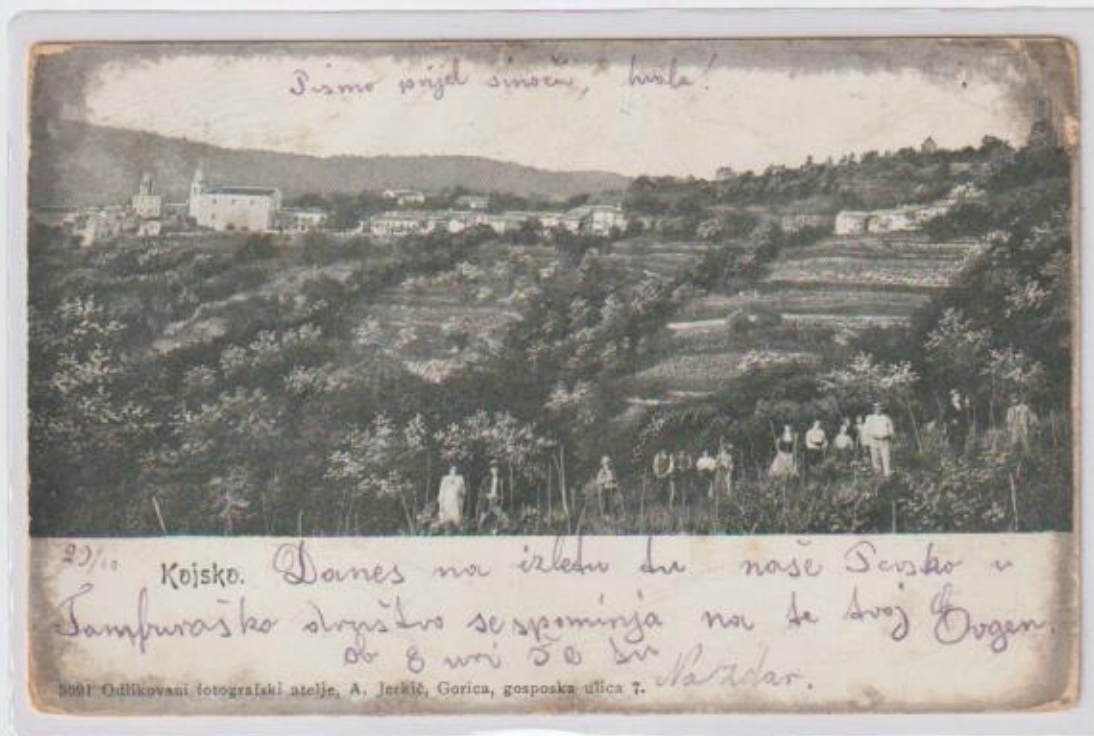 Pismo prijel sinoči, hvala!
Kojsko. Danes na izletu tu naše Pevsko i
Tamburaško društvo se spominja na te tvoj Evgen.
ob 8 uri
Nazdar.
5091 Odlikovani fotografski atelje, A. Jerkič, Gorica, gosposka ulica 7.